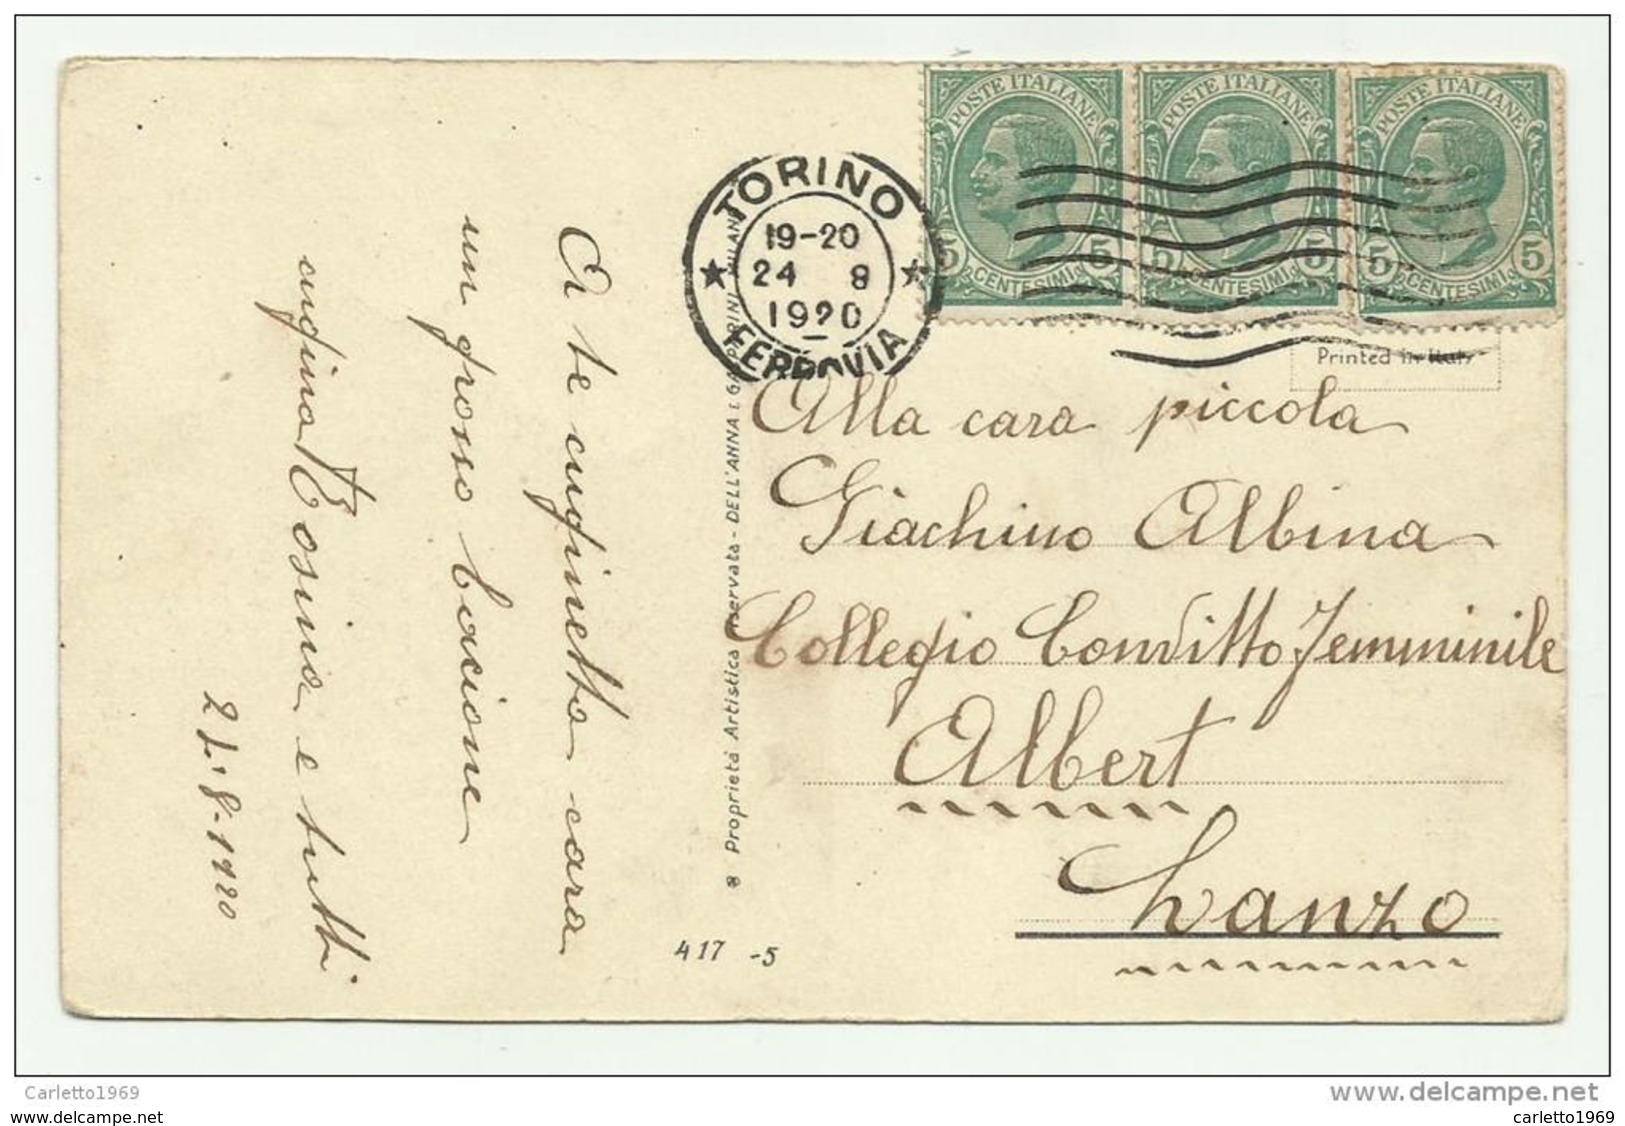 A te cuginetta cara
un grosso bacione
cugina Rosina e tutti
8.1920
TORINO
19-20
24 8
1920
FERROVIA
POSTE ITALIANE
5 CENTESIMI 5
POSTE ITALIANE
5 CENTESIMI 5
POSTE ITALIANE
5 CENTESIMI 5
Printed in Italy
Proprietà Artistica riservata - DELL'ANNA E GASPARINI MILANO
417 -5
Alla cara piccola
Giachino Albina
Collegio Convitto Femminile
Albert
Lanzo
Carletto1969
www.delcampe.net
carletto1969
carletto1969